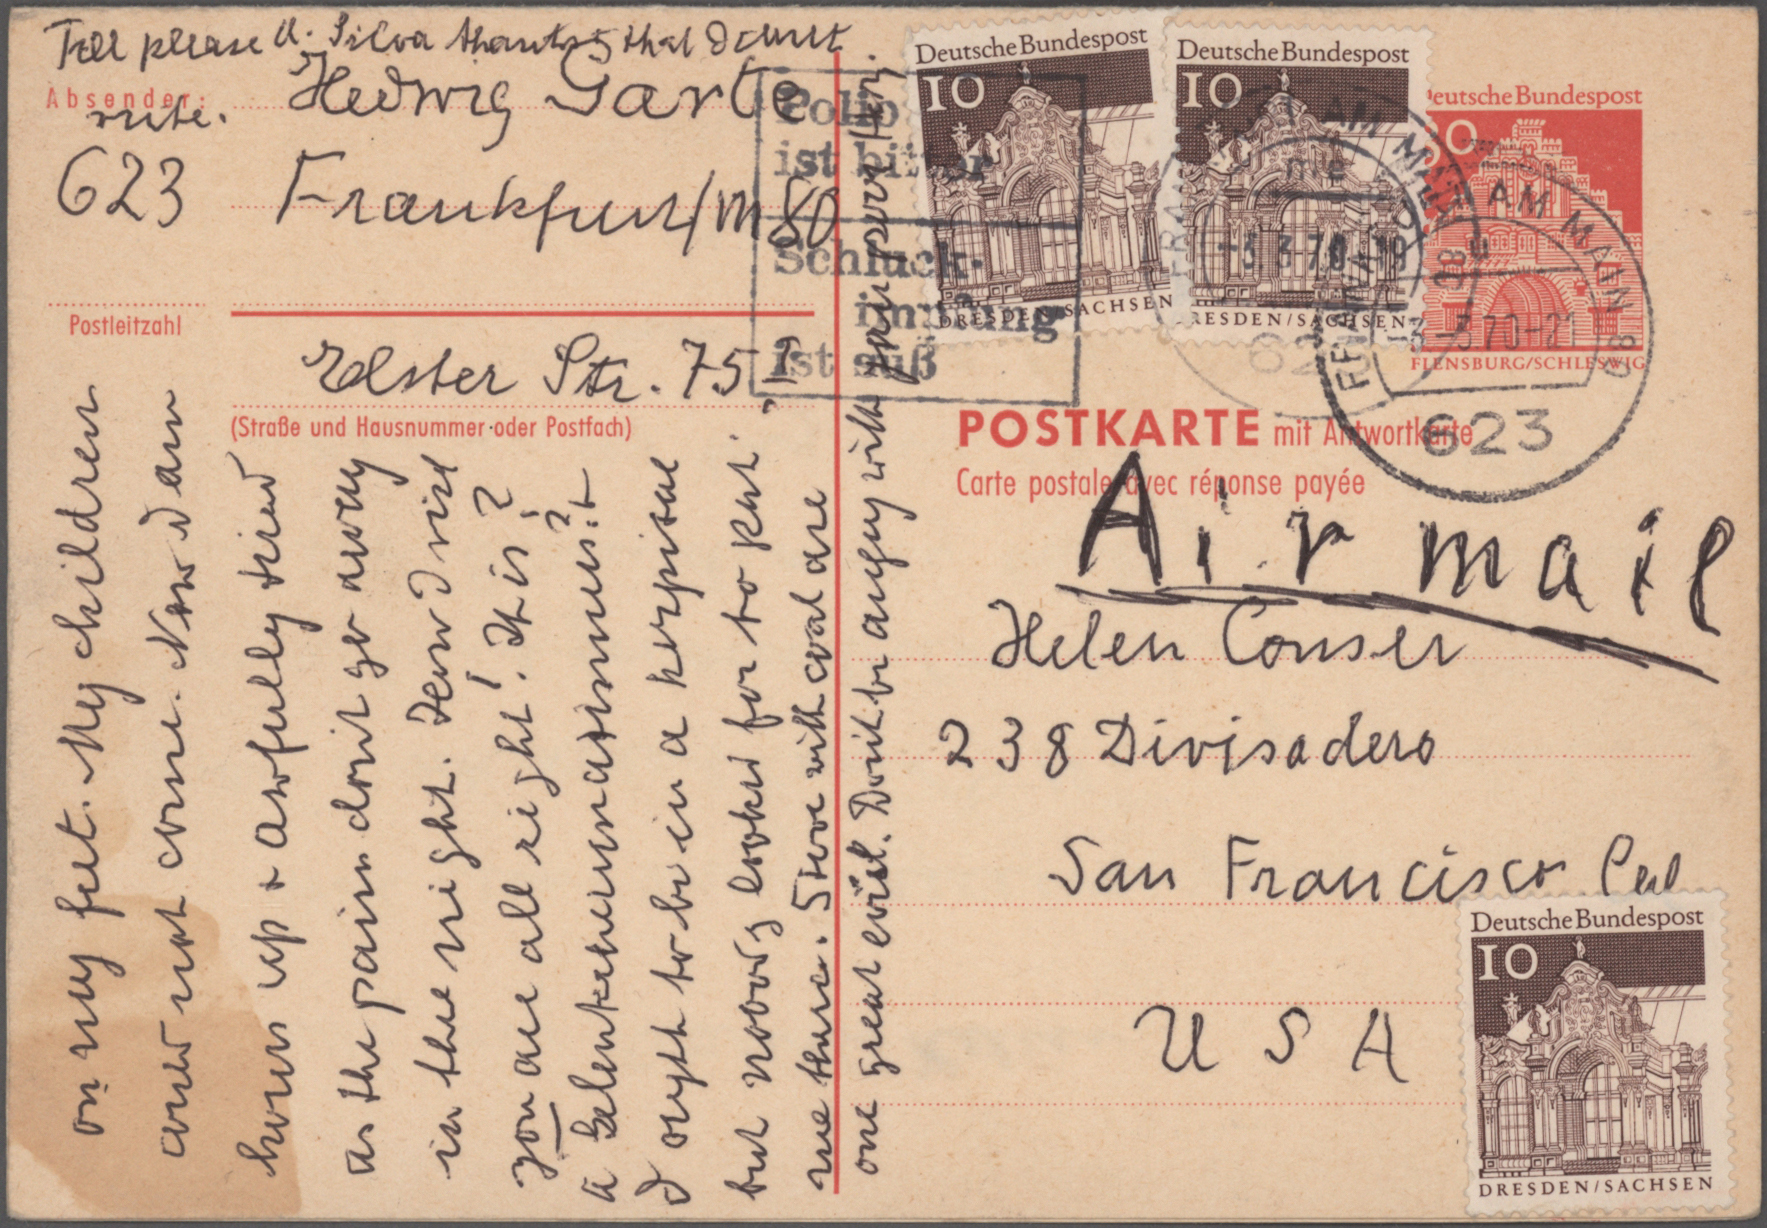 Tell please U. Silva thanks that I cant
write.
Absender:
Hedwig Garte
623 Frankfurt/M 80
Postleitzahl
Elster Str. 75 I
(Straße und Hausnummer oder Postfach)
Polio
ist bitter
Schluck-
impfung
ist süß
Deutsche Bundespost
10
DRESDEN/SACHSEN
Deutsche Bundespost
10
DRESDEN/SACHSEN
Deutsche Bundespost
30
FLENSBURG/SCHLESWIG
FRANKFURT AM MAIN 80
-3.3.70-19
me
623
FRANKFURT AM MAIN 80
-3.-3.70-21
u
623
POSTKARTE mit Antwortkarte
Carte postale avec réponse payée
Air mail
Helen Conser
238 Divisadero
San Francisco Cal
USA
Deutsche Bundespost
10
DRESDEN/SACHSEN
on my feet. My children
can not come. Now I am
up + awfully tired
as the pain dont go away
in the night. I
you are all right! It is?
a
I ought to be in a hospital
but nobody looked for to put
me there. Stove with coal are
one great evil. Dont be angry with your